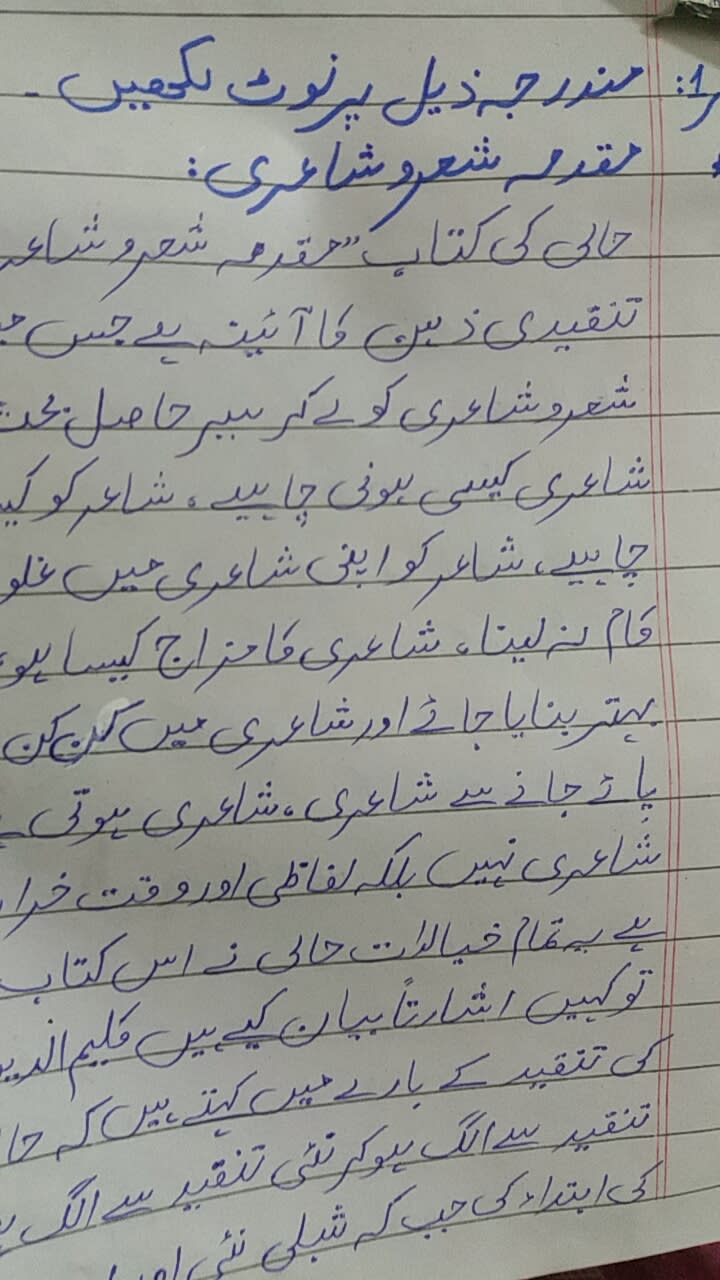 1: مندرجہ ذیل پر نوٹ لکھیں۔
مقدمہ شعر و شاعری:
حالی کی کتاب "مقدمہ شعر و شاعر
تنقیدی ذہن کا آئینہ ہے جس
شعر و شاعری کو لے کر سیر حاصل بحث
شاعری کیسی ہونی چاہیے، شاعر کو
چاہیے، شاعر کو اپنی شاعری میں غلو
کام نہ لینا، شاعری کا مزاج کیسا ہو،
بہتر بنایا جائے اور شاعری میں کن کن
پائے جانے سے شاعری، شاعری ہوتی
شاعری نہیں بلکہ لفاظی اور وقت
ہے یہ تمام خیالات حالی نے اس کتاب
تو کہیں اشارتاً بیان کیے ہیں کلیم الدین
کی تنقید کے بارے میں کہتے ہیں کہ
تنقید سے الگ ہو کر نئی تنقید سے الگ
کی ابتداء کی جب کہ شبلی نئی